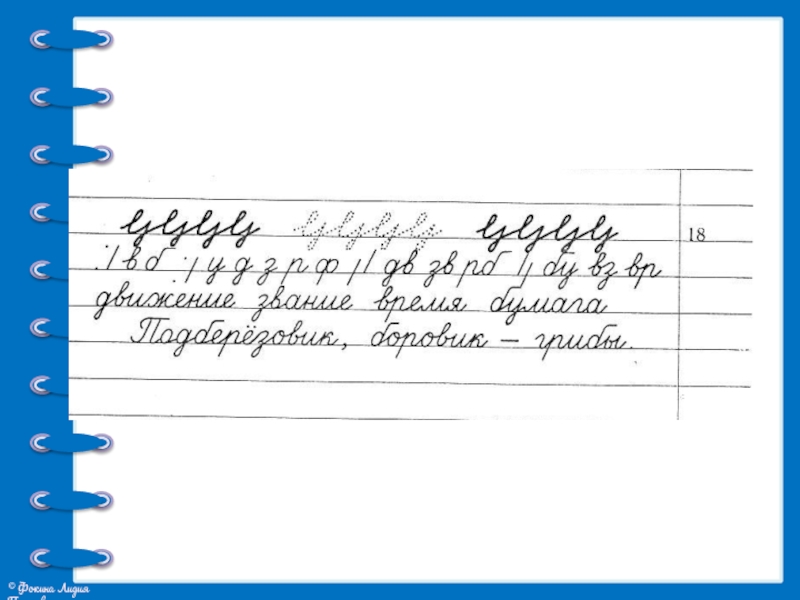 18
в б у д з р ф дв зв рб бу вз вр
движение звание время бумага
Подберёзовик, боровик – грибы.
© Фокина Лидия